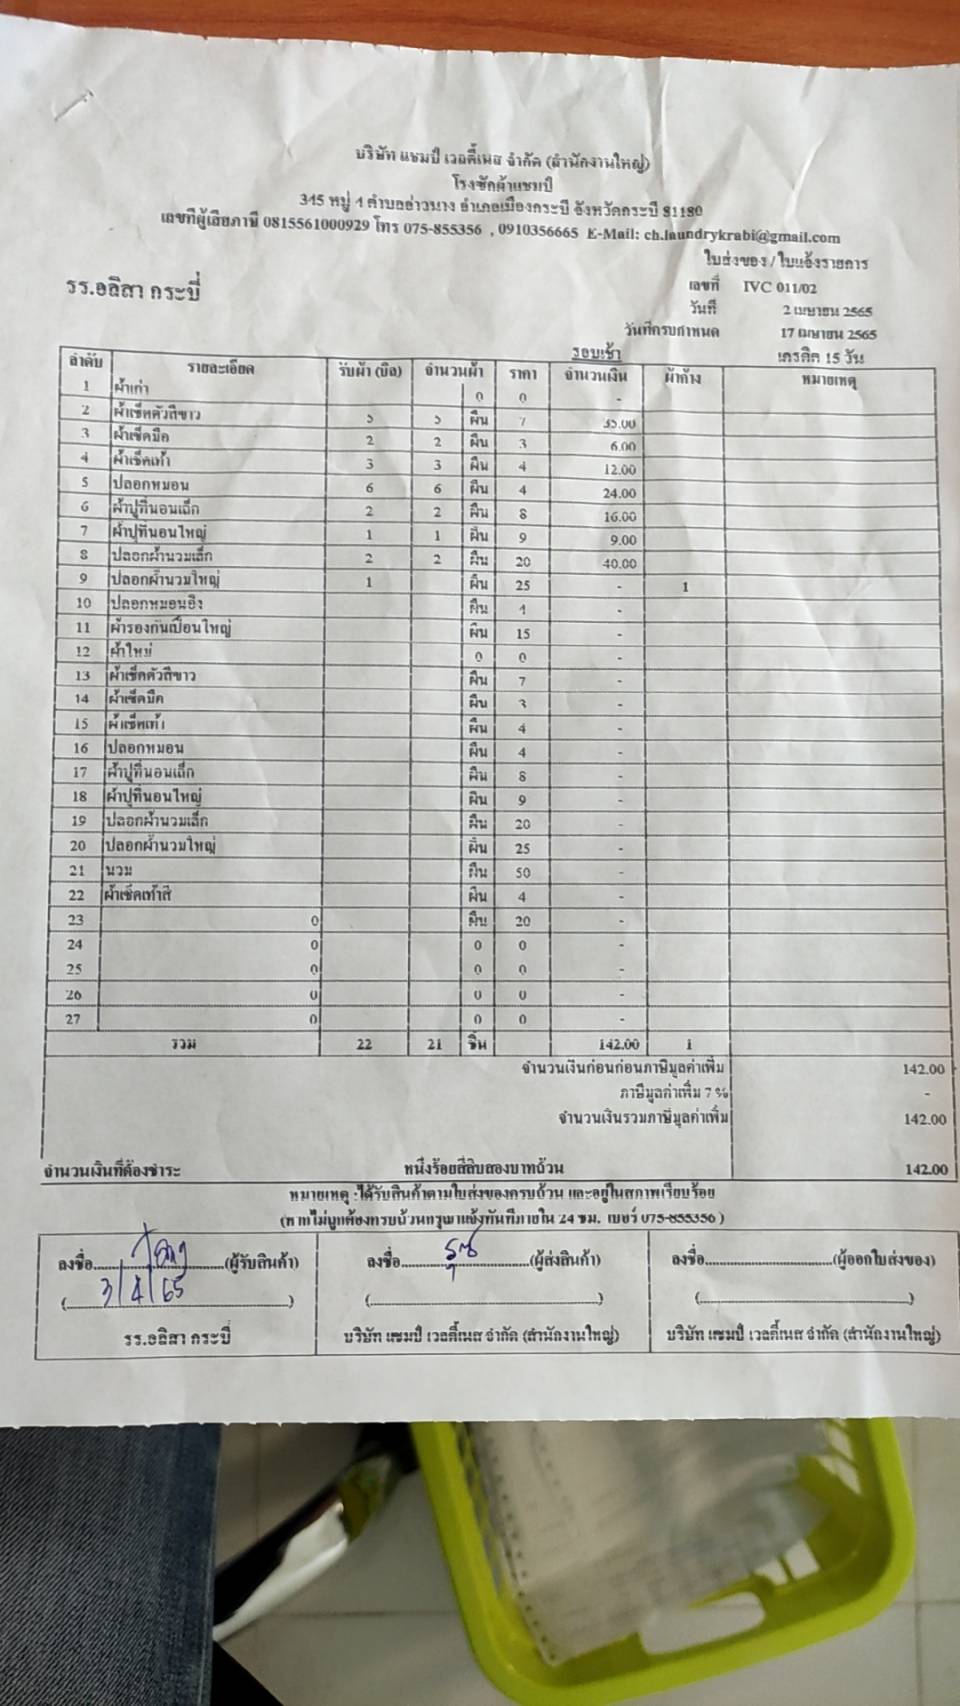 บริษัท แชมป์ เวลตี้เนส จำกัด (สำนักงานใหญ่)
โรงซักผ้าแชมป์
345 หมู่ 4 ตำบลอ่าวนาง อำเภอเมืองกระบี่ จังหวัดกระบี่ 81180
เลขที่ผู้เสียภาษี 0815561000929 โทร 075-855356 , 0910356665 E-Mail: ch.laundrykrabi@gmail.com
ใบส่งของ / ใบแจ้งรายการ
รร.อลิสา กระบี่ เลขที่ IVC 011/02
วันที่ 2 เมษายน 2565
วันที่ครบกำหนด 17 เมษายน 2565
รอบเช้า เครดิต 15 วัน
ลำดับ รายละเอียด รับผ้า (บิล) จำนวนผ้า ราคา จำนวนเงิน ผ้าค้าง หมายเหตุ
1 ผ้าเก่า 0 0 -
2 ผ้าเช็คตัวสีขาว 5 5 ผืน 7 35.00
3 ผ้าเช็คมือ 2 2 ผืน 3 6.00
4 ผ้าเช็คเท้า 3 3 ผืน 4 12.00
5 ปลอกหมอน 6 6 ผืน 4 24.00
6 ผ้าปูที่นอนเล็ก 2 2 ผืน 8 16.00
7 ผ้าปูที่นอนใหญ่ 1 1 ผืน 9 9.00
8 ปลอกผ้านวมเล็ก 2 2 ผืน 20 40.00
9 ปลอกผ้านวมใหญ่ 1 ผืน 25 - 1
10 ปลอกหมอนอิง ผืน 4 -
11 ผ้ารองกันเปื้อนใหญ่ ผืน 15 -
12 ผ้าใหม่ 0 0 -
13 ผ้าเช็คตัวสีขาว ผืน 7 -
14 ผ้าเช็คมือ ผืน 3 -
15 ผ้าเช็คเท้า ผืน 4 -
16 ปลอกหมอน ผืน 4 -
17 ผ้าปูที่นอนเล็ก ผืน 8 -
18 ผ้าปูที่นอนใหญ่ ผืน 9 -
19 ปลอกผ้านวมเล็ก ผืน 20 -
20 ปลอกผ้านวมใหญ่ ผืน 25 -
21 นวม ผืน 50 -
22 ผ้าเช็คเท้าสี ผืน 4 -
23 0 ผืน 20 -
24 0 0 0 -
25 0 0 0 -
26 0 0 0 -
27 0 0 0 -
รวม 22 21 ชิ้น 142.00 1
จำนวนเงินก่อนก่อนภาษีมูลค่าเพิ่ม 142.00
ภาษีมูลค่าเพิ่ม 7 % -
จำนวนเงินรวมภาษีมูลค่าเพิ่ม 142.00
จำนวนเงินที่ต้องชำระ หนึ่งร้อยสี่สิบสองบาทถ้วน 142.00
หมายเหตุ :ได้รับสินค้าตามใบส่งของครบถ้วน และอยู่ในสภาพเรียบร้อย
(หากไม่ถูกต้องครบถ้วนกรุณาแจ้งทันทีภายใน 24 ชม. เบอร์ 075-855356 )
ลงชื่อ..............................(ผู้รับสินค้า) ลงชื่อ..............................(ผู้ส่งสินค้า) ลงชื่อ..............................(ผู้ออกใบส่งของ)
(3/4/65) (..............................) (..............................)
รร.อลิสา กระบี่ บริษัท แชมป์ เวลตี้เนส จำกัด (สำนักงานใหญ่) บริษัท แชมป์ เวลตี้เนส จำกัด (สำนักงานใหญ่)